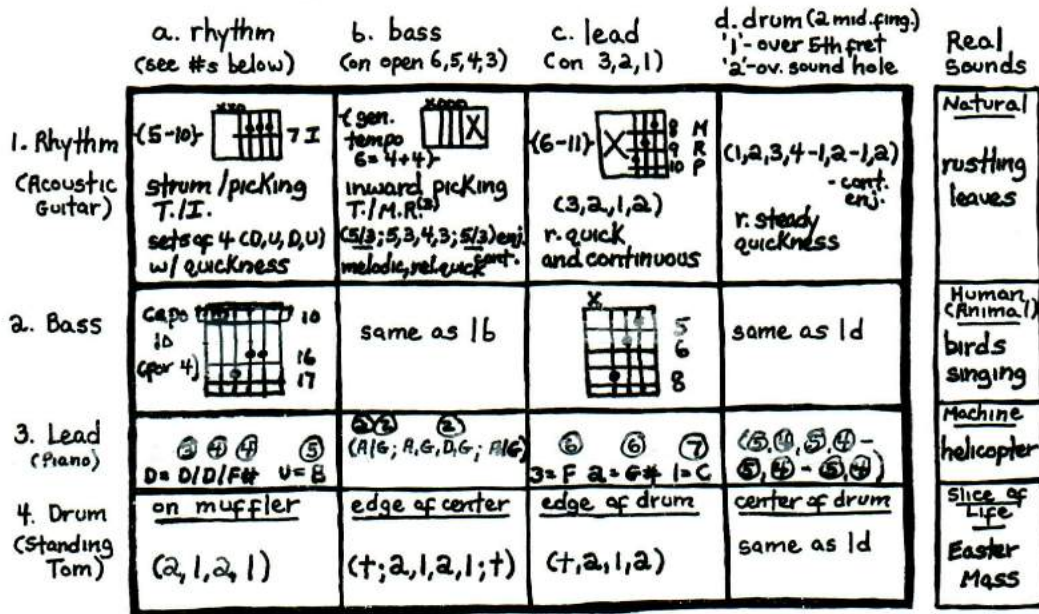 a. rhythm
(see #s below)
b. bass
(on open 6,5,4,3)
c. lead
(on 3,2,1)
d. drum (2 mid.fing.)
'1'-over 5th fret
'2'-ov. sound hole
Real
Sounds
1. Rhythm
(Acoustic
Guitar)
{5-10}
xxo
7 I
strum/picking
T./I.
sets of 4 (D,U,D,U)
w/ quickness
{gen.
tempo
6=4+4}
xooo
X
inward picking
T./M.R.(3)
(5/3; 5,3,4,3; 5/3) enj.
melodic, rel. quick cont.
{6-11}
X
8 M
9 R
10 P
(3,2,1,2)
r. quick
and continuous
(1,2,3,4-1,2-1,2)
- cont.
enj.
r. steady
quickness
Natural
rustling
leaves
2. Bass
capo
10
(for 4)
10
16
17
same as 1b
X
5
6
8
same as 1d
Human
(Animal)
birds
singing
3. Lead
(Piano)
③ ④ ④ ⑤
D = D/D/F# U = B
② ② ②
(A/G; A,G,D,G; A/G)
⑥ ⑥ ⑦
3=F 2=G# 1=C
(⑤,④,⑤,④-
⑤,④-⑤,④)
Machine
helicopter
4. Drum
(Standing
Tom)
on muffler
(2,1,2,1)
edge of center
(t;2,1,2,1;t)
edge of drum
(t,2,1,2)
center of drum
same as 1d
Slice of
Life
Easter
Mass